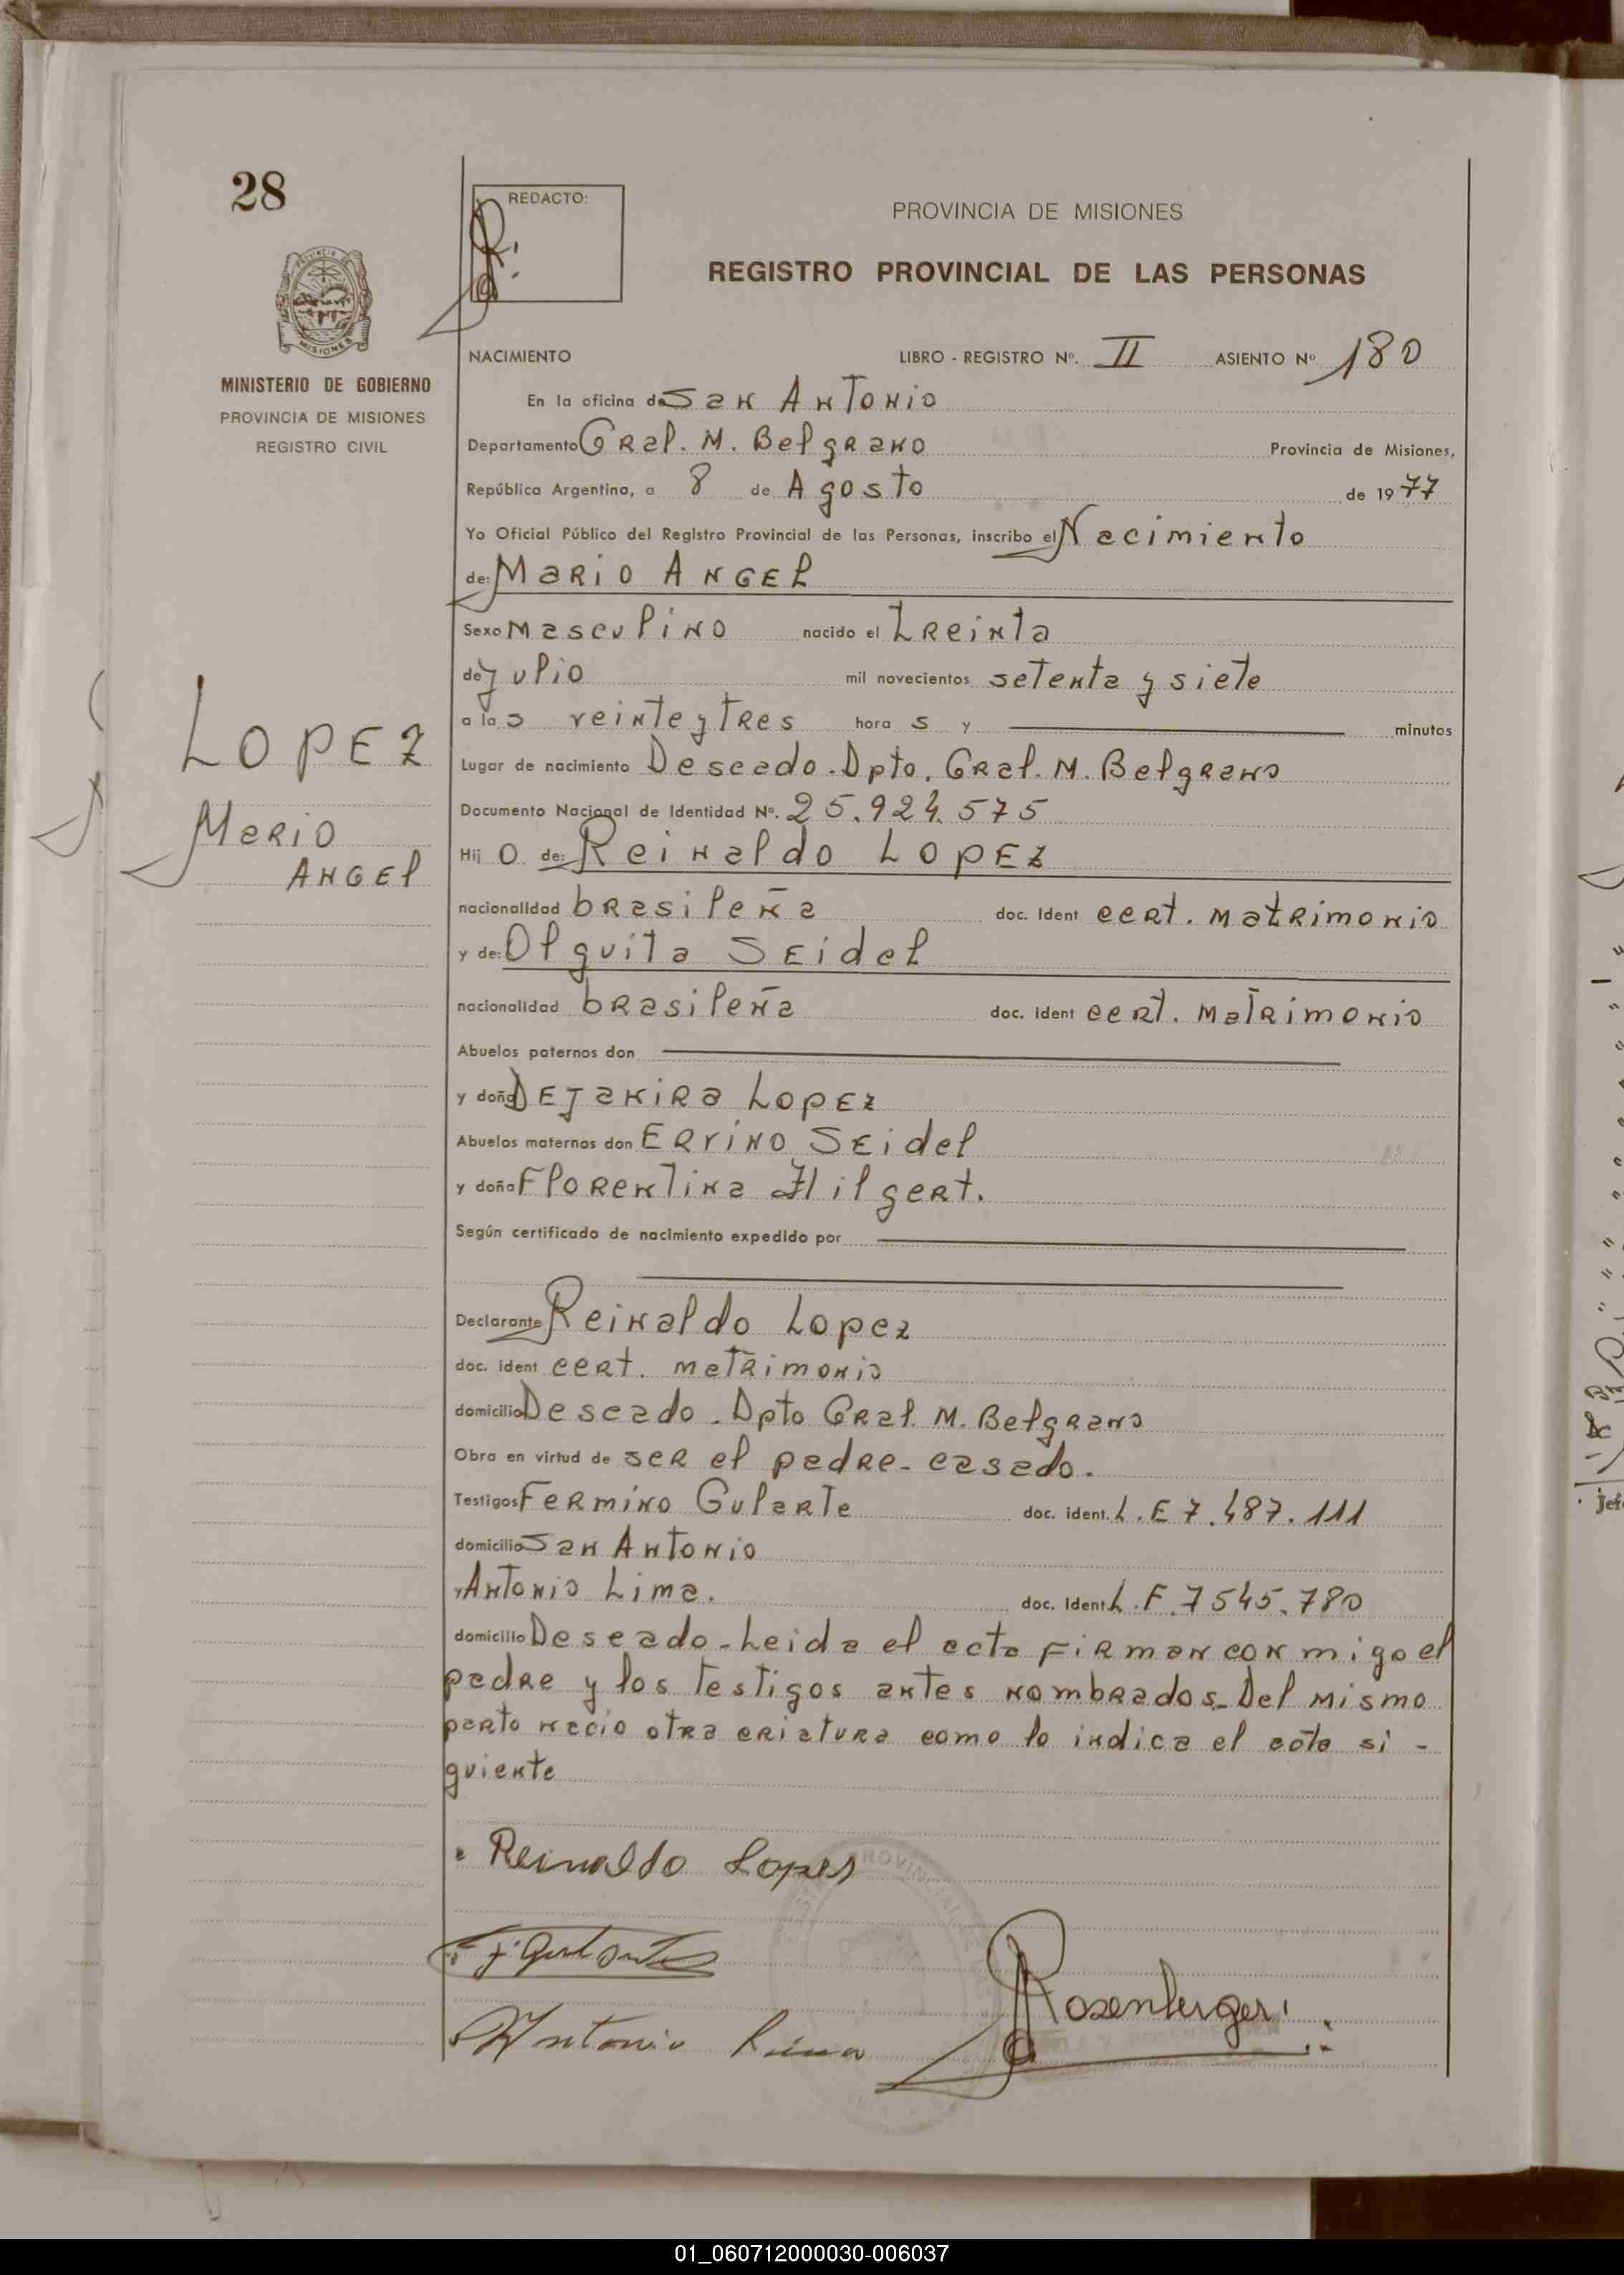 28
REDACTO:
PROVINCIA DE MISIONES
REGISTRO PROVINCIAL DE LAS PERSONAS
MISIONES
MINISTERIO DE GOBIERNO
PROVINCIA DE MISIONES
REGISTRO CIVIL
NACIMIENTO LIBRO - REGISTRO Nº. II ASIENTO Nº 180
En la oficina de San Antonio
Departamento Gral. M. Belgrano Provincia de Misiones,
República Argentina, a 8 de Agosto de 1977
Yo Oficial Público del Registro Provincial de las Personas, inscribo el Nacimiento
de: Mario Angel
Sexo Masculino nacido el Treinta
de Julio mil novecientos setenta y siete
a las veinte y tres horas y minutos
LOPEZ
Mario
Angel
Lugar de nacimiento Deseado. Dpto. Gral. M. Belgrano
Documento Nacional de Identidad Nº. 25.924.575
Hijo de: Reinaldo LOPEZ
nacionalidad brasileña doc. Ident cert. Matrimonio
y de: Olguita SEidel
nacionalidad brasileña doc. ident cert. Matrimonio
Abuelos paternos don
y doña DEJanira LOPEZ
Abuelos maternos don Ervino SEidel
y doña Florentina Hilgert.
Según certificado de nacimiento expedido por
Declarante Reinaldo Lopez
doc. ident cert. matrimonio
domicilio Deseado. Dpto Gral. M. Belgrano
Obra en virtud de ser el padre - casado.
Testigos Fermino Gularte doc. ident. L.E 7.487.111
domicilio San Antonio
y Antonio Lima. doc. ident L.E. 7545.780
domicilio Deseado - Leida el acta firman con migo el
padre y los testigos antes nombrados - Del mismo
parto nacio otra criatura como lo indica el acta si -
guiente
Reinaldo Lopes
Antonio Lima
Rosenberger
01_060712000030-006037